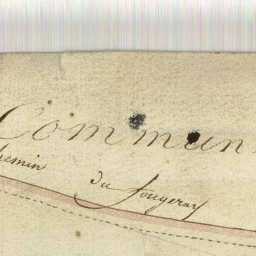 Commun
hemin du fougeray